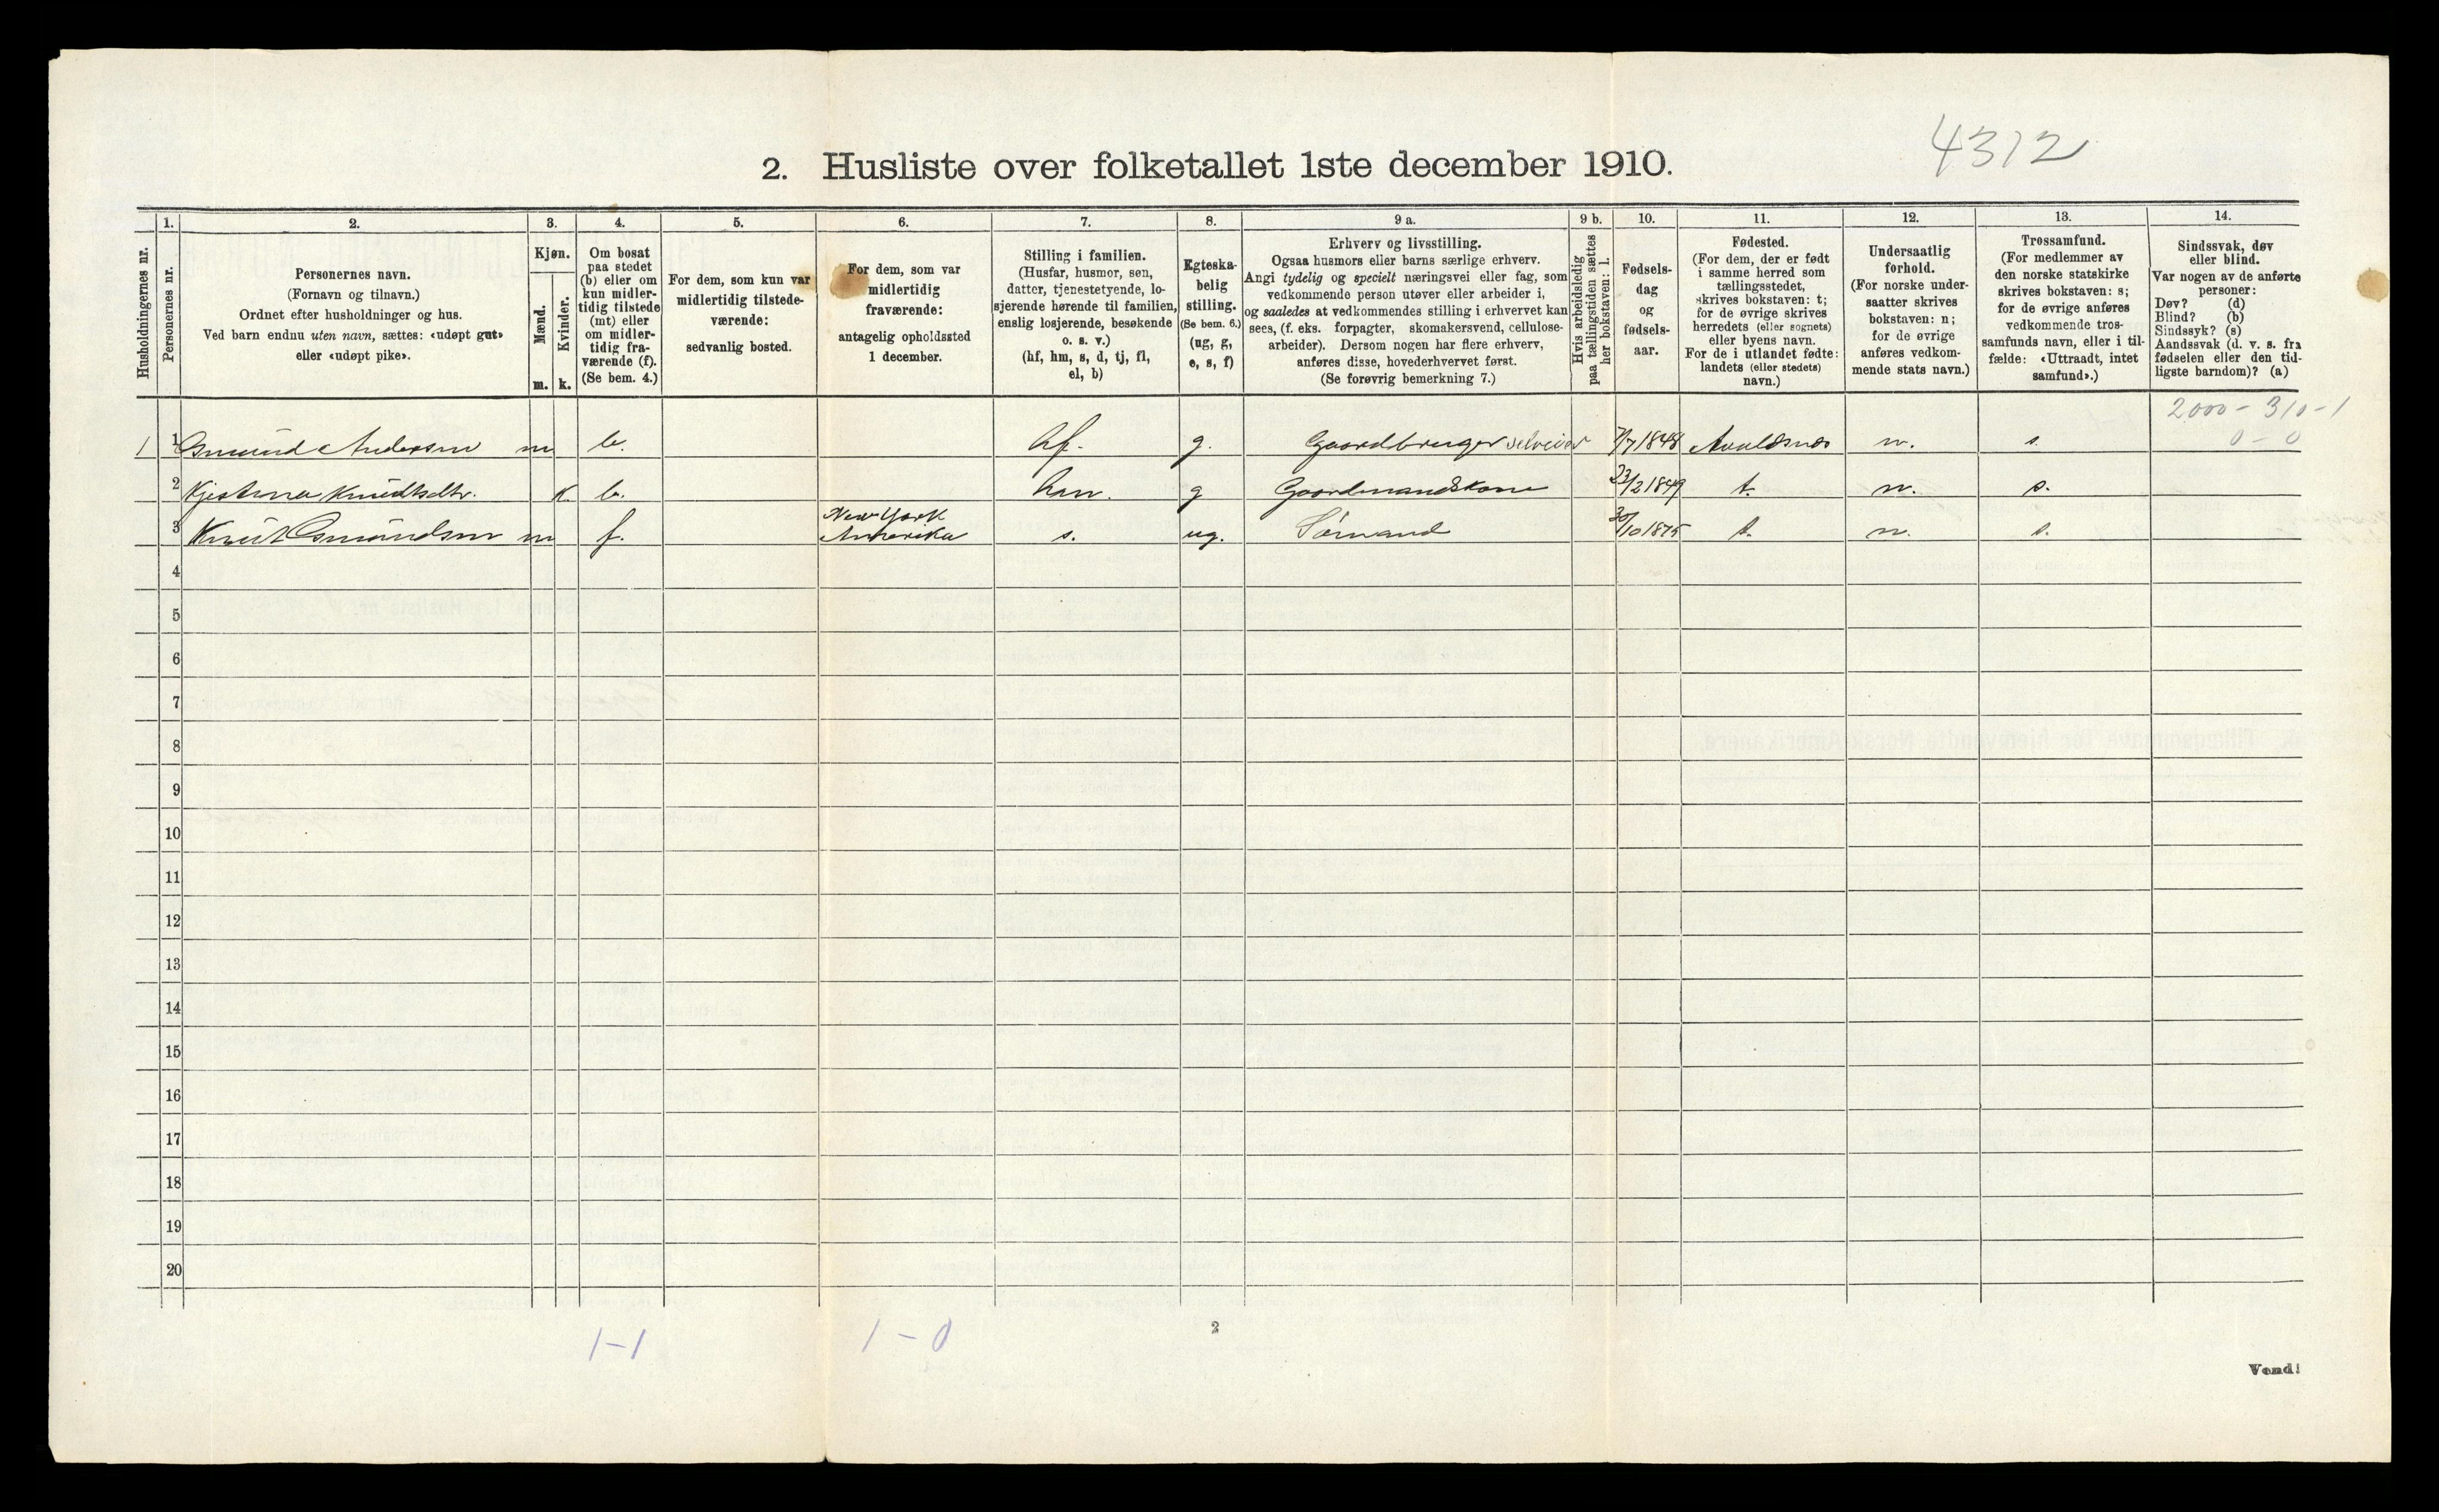 4312
2. Husliste over folketallet 1ste december 1910.
Husholdningernes nr.
1.
Personernes nr.
2.
Personernes navn.
(Fornavn og tilnavn.)
Ordnet efter husholdninger og hus.
Ved barn endnu uten navn, sættes: «udøpt gut»
eller «udøpt pike».
3.
Kjøn.
Mænd.
m.
Kvinder.
k.
4.
Om bosat
paa stedet
(b) eller om
kun midler-
tidig tilstede
(mt) eller
om midler-
tidig fra-
værende (f).
(Se bem. 4.)
5.
For dem, som kun var
midlertidig tilstede-
værende:
sedvanlig bosted.
6.
For dem, som var
midlertidig
fraværende:
antagelig opholdssted
1 december.
7.
Stilling i familien.
(Husfar, husmor, søn,
datter, tjenestetyende, lo-
sjerende hørende til familien,
enslig losjerende, besøkende
o. s. v.)
(hf, hm, s, d, tj, fl,
el, b)
8.
Egteska-
belig
stilling.
(Se bem. 6.)
(ug, g,
e, s, f)
9 a.
Erhverv og livsstilling.
Ogsaa husmors eller barns særlige erhverv.
Angi tydelig og specielt næringsvei eller fag, som
vedkommende person utøver eller arbeider i,
og saaledes at vedkommendes stilling i erhvervet kan
sees, (f. eks. forpagter, skomakersvend, cellulose-
arbeider). Dersom nogen har flere erhverv,
anføres disse, hovederhvervet først.
(Se forøvrig bemerkning 7.)
9 b.
Hvis arbeidsledig
paa tællingstiden sættes
her bokstaven: l.
10.
Fødsels-
dag
og
fødsels-
aar.
11.
Fødested.
(For dem, der er født
i samme herred som
tællingsstedet,
skrives bokstaven: t;
for de øvrige skrives
herredets (eller sognets)
eller byens navn.
For de i utlandet fødte:
landets (eller stedets)
navn.)
12.
Undersaatlig
forhold.
(For norske under-
saatter skrives
bokstaven: n;
for de øvrige
anføres vedkom-
mende stats navn.)
13.
Trossamfund.
(For medlemmer av
den norske statskirke
skrives bokstaven: s;
for de øvrige anføres
vedkommende tros-
samfunds navn, eller i til-
fælde: «Uttraadt, intet
samfund».)
14.
Sindssvak, døv
eller blind.
Var nogen av de anførte
personer:
Døv? (d)
Blind? (b)
Sindssyk? (s)
Aandssvak (d. v. s. fra
fødselen eller den tid-
ligste barndom)? (a)
2000 - 310 - 1
0 - 0
1 1 Osmund Andersen m b. hf. g. Gaardbruger selveier 7/7 1848 Avaldsnes n. s.
2 Kjestina Knudtsdtr. k. b. hm. g Gaardmandskone 23/2 1849 t. n. s.
3 Knut Osmundsen m f. New York Amerika s. ug. Sømand 30/10 1875 t. n. s.
4
5
6
7
8
9
10
11
12
13
14
15
16
17
18
19
20
1-1
1-0
2
Vend!